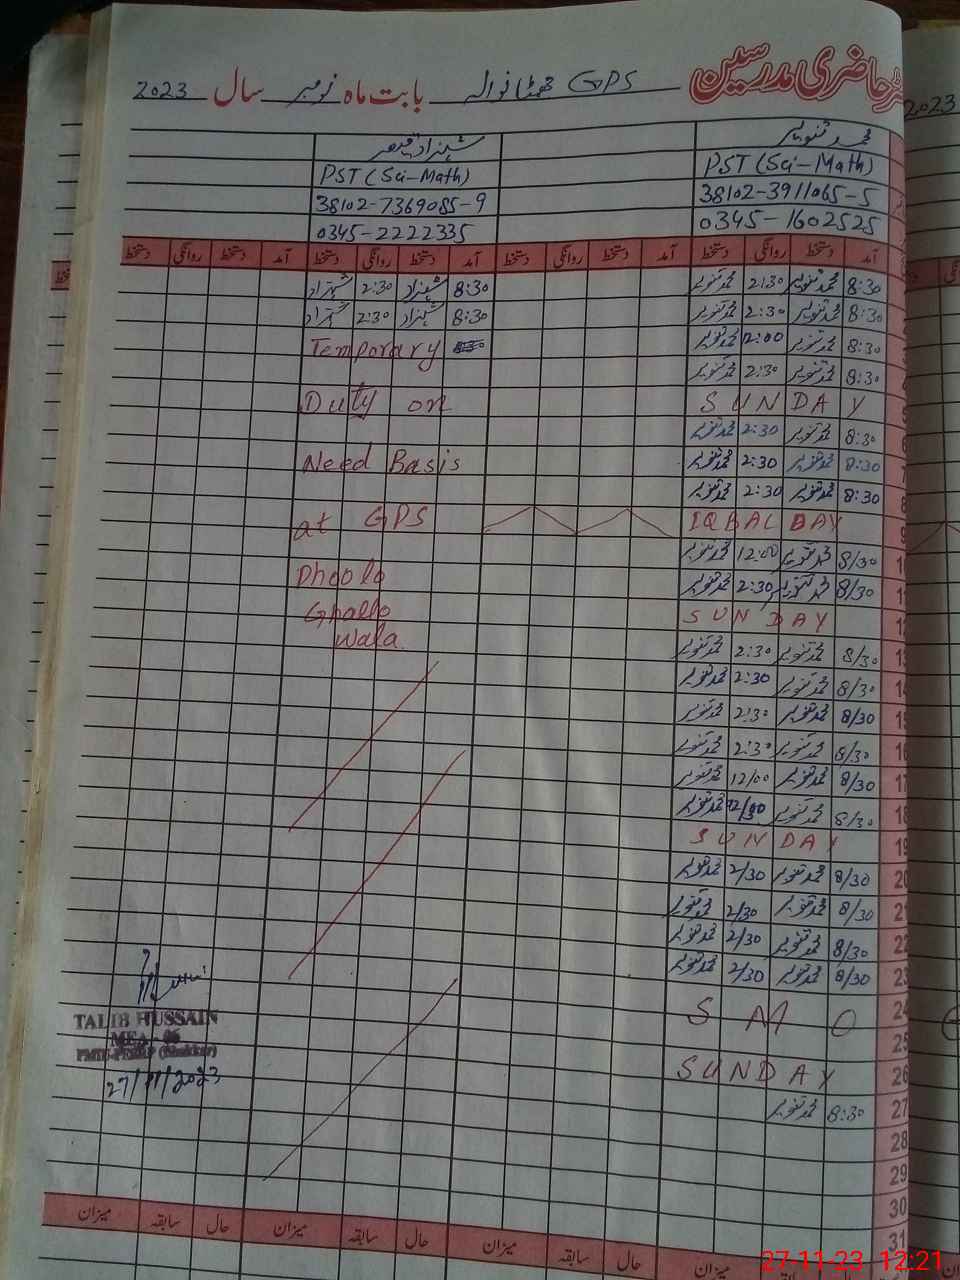 رجسٹر حاضری مدرسین GPS جھمٹانوالہ بابت ماہ نومبر سال 2023
2023
محمد تنویر شہزاد قیصر
PST (Sci-Math) PST (Sci-Math)
38102-3911065-5 38102-7369085-9
0345-1602525 0345-2222335
آمد دستخط روانگی دستخط آمد دستخط روانگی دستخط آمد دستخط روانگی دستخط آمد دستخط روانگی دستخط
8:30 محمد تنویر 2:30 محمد تنویر 8:30 شہزاد 2:30 شہزاد
8:30 محمد تنویر 2:30 محمد تنویر 8:30 شہزاد 2:30 شہزاد
8:30 محمد تنویر 2:00 محمد تنویر Temporary
8:30 محمد تنویر 2:30 محمد تنویر
SUNDAY Duty on
8:30 محمد تنویر 2:30 محمد تنویر
7 8:30 محمد تنویر 2:30 محمد تنویر Need Basis
8 8:30 محمد تنویر 2:30 محمد تنویر
9 IQBAL DAY at GPS
8/30 محمد تنویر 12:00 محمد تنویر
8/30 محمد تنویر 2:30 محمد تنویر Dhoola
SUNDAY Ghallo
13 8/30 محمد تنویر 2:30 محمد تنویر Wala
14 8/30 محمد تنویر 2:30 محمد تنویر
15 8/30 محمد تنویر 2:30 محمد تنویر
16 8/30 محمد تنویر 2:30 محمد تنویر
17 8/30 محمد تنویر 12/00 محمد تنویر
18 8/30 محمد تنویر محمد تنویر
19 SUNDAY
20 8/30 محمد تنویر 2/30 محمد تنویر
21 8/30 محمد تنویر 2/30 محمد تنویر
22 8/30 محمد تنویر 2/30 محمد تنویر
23 8/30 محمد تنویر 2/30 محمد تنویر
24 SMO
25
26 SUNDAY
27 8:30 محمد تنویر
28
29
30
31
TALIB HUSSAIN
MEA - 06
27/11/2023
میزان حال سابقہ میزان حال سابقہ میزان حال سابقہ میزان
27-11-23 12:21